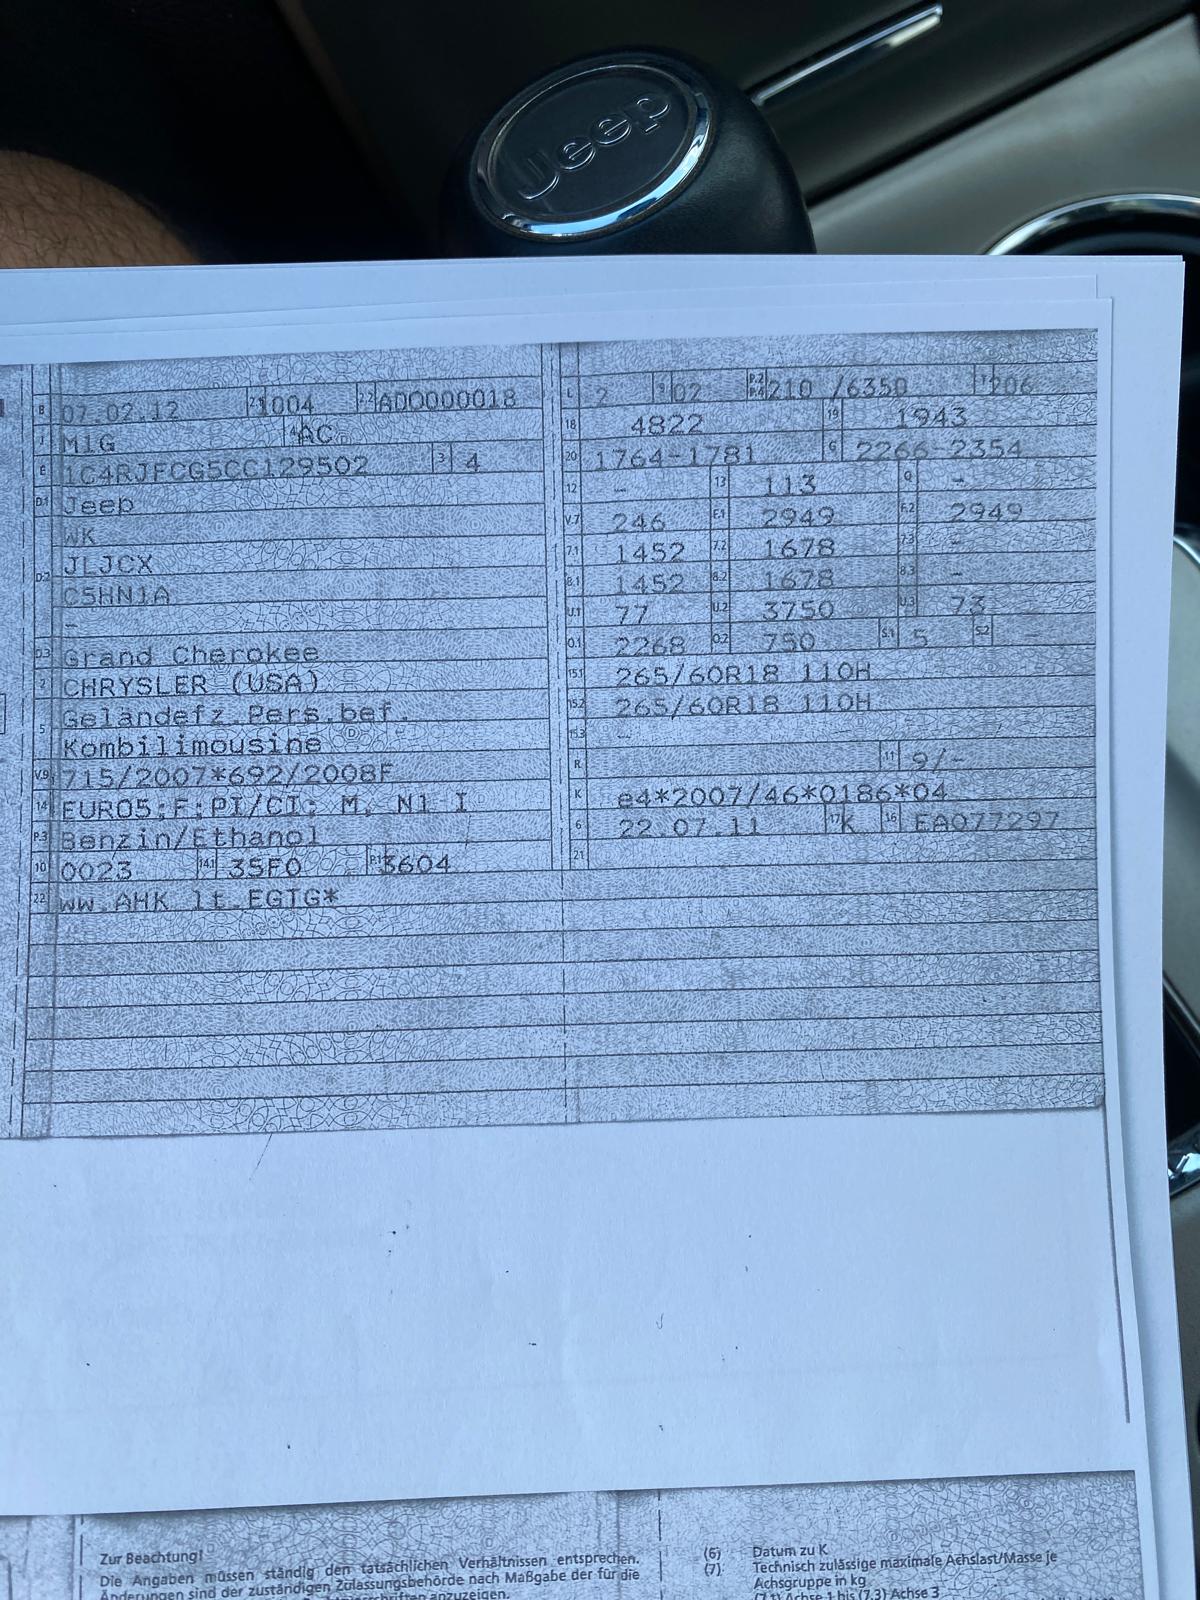 Jeep
B 07.02.12 2.1 1004 2.2 ADO000018
J M1G 4 AC
E 1C4RJFCG5CC129502 3 4
D.1 Jeep
WK
D.2 JLJCX
C5HN1A
-
D.3 Grand Cherokee
2 CHRYSLER (USA)
5 Geländefz.Pers.bef.
Kombilimousine
V.9 715/2007*692/2008F
14 EURO5;F;PI/CI; M, N1 I
P.3 Benzin/Ethanol
10 0023 14.1 35F0 P.1 3604
22 ww.AHK lt.EGTG*
L 2 9 02 P.2 P.4 210 /6350 T 206
18 4822 19 1943
20 1764-1781 G 2266-2354
12 - 13 113 Q -
V.7 246 F.1 2949 F.2 2949
7.1 1452 7.2 1678 7.3 -
8.1 1452 8.2 1678 8.3 -
U.1 77 U.2 3750 U.3 73
O.1 2268 O.2 750 S.1 5 S.2
15.1 265/60R18 110H
15.2 265/60R18 110H
15.3 -
R 11 9/-
K e4*2007/46*0186*04
6 22.07.11 17 K 16 EA077297
21
Zur Beachtung!
Die Angaben müssen ständig den tatsächlichen Verhältnissen entsprechen.
Änderungen sind der zuständigen Zulassungsbehörde nach Maßgabe der für die
anzuzeigen.
(6) Datum zu K
(7) Technisch zulässige maximale Achslast/Masse je
Achsgruppe in kg
(7.1) Achse 1 bis (7.3) Achse 3